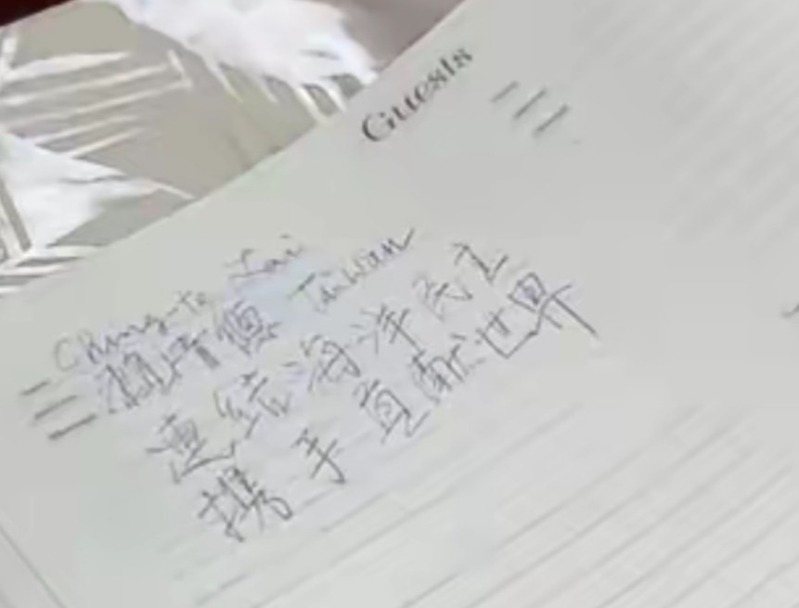 Guests
Ching-te Lai
賴清德 Taiwan
連結海洋民主
攜手貢献世界